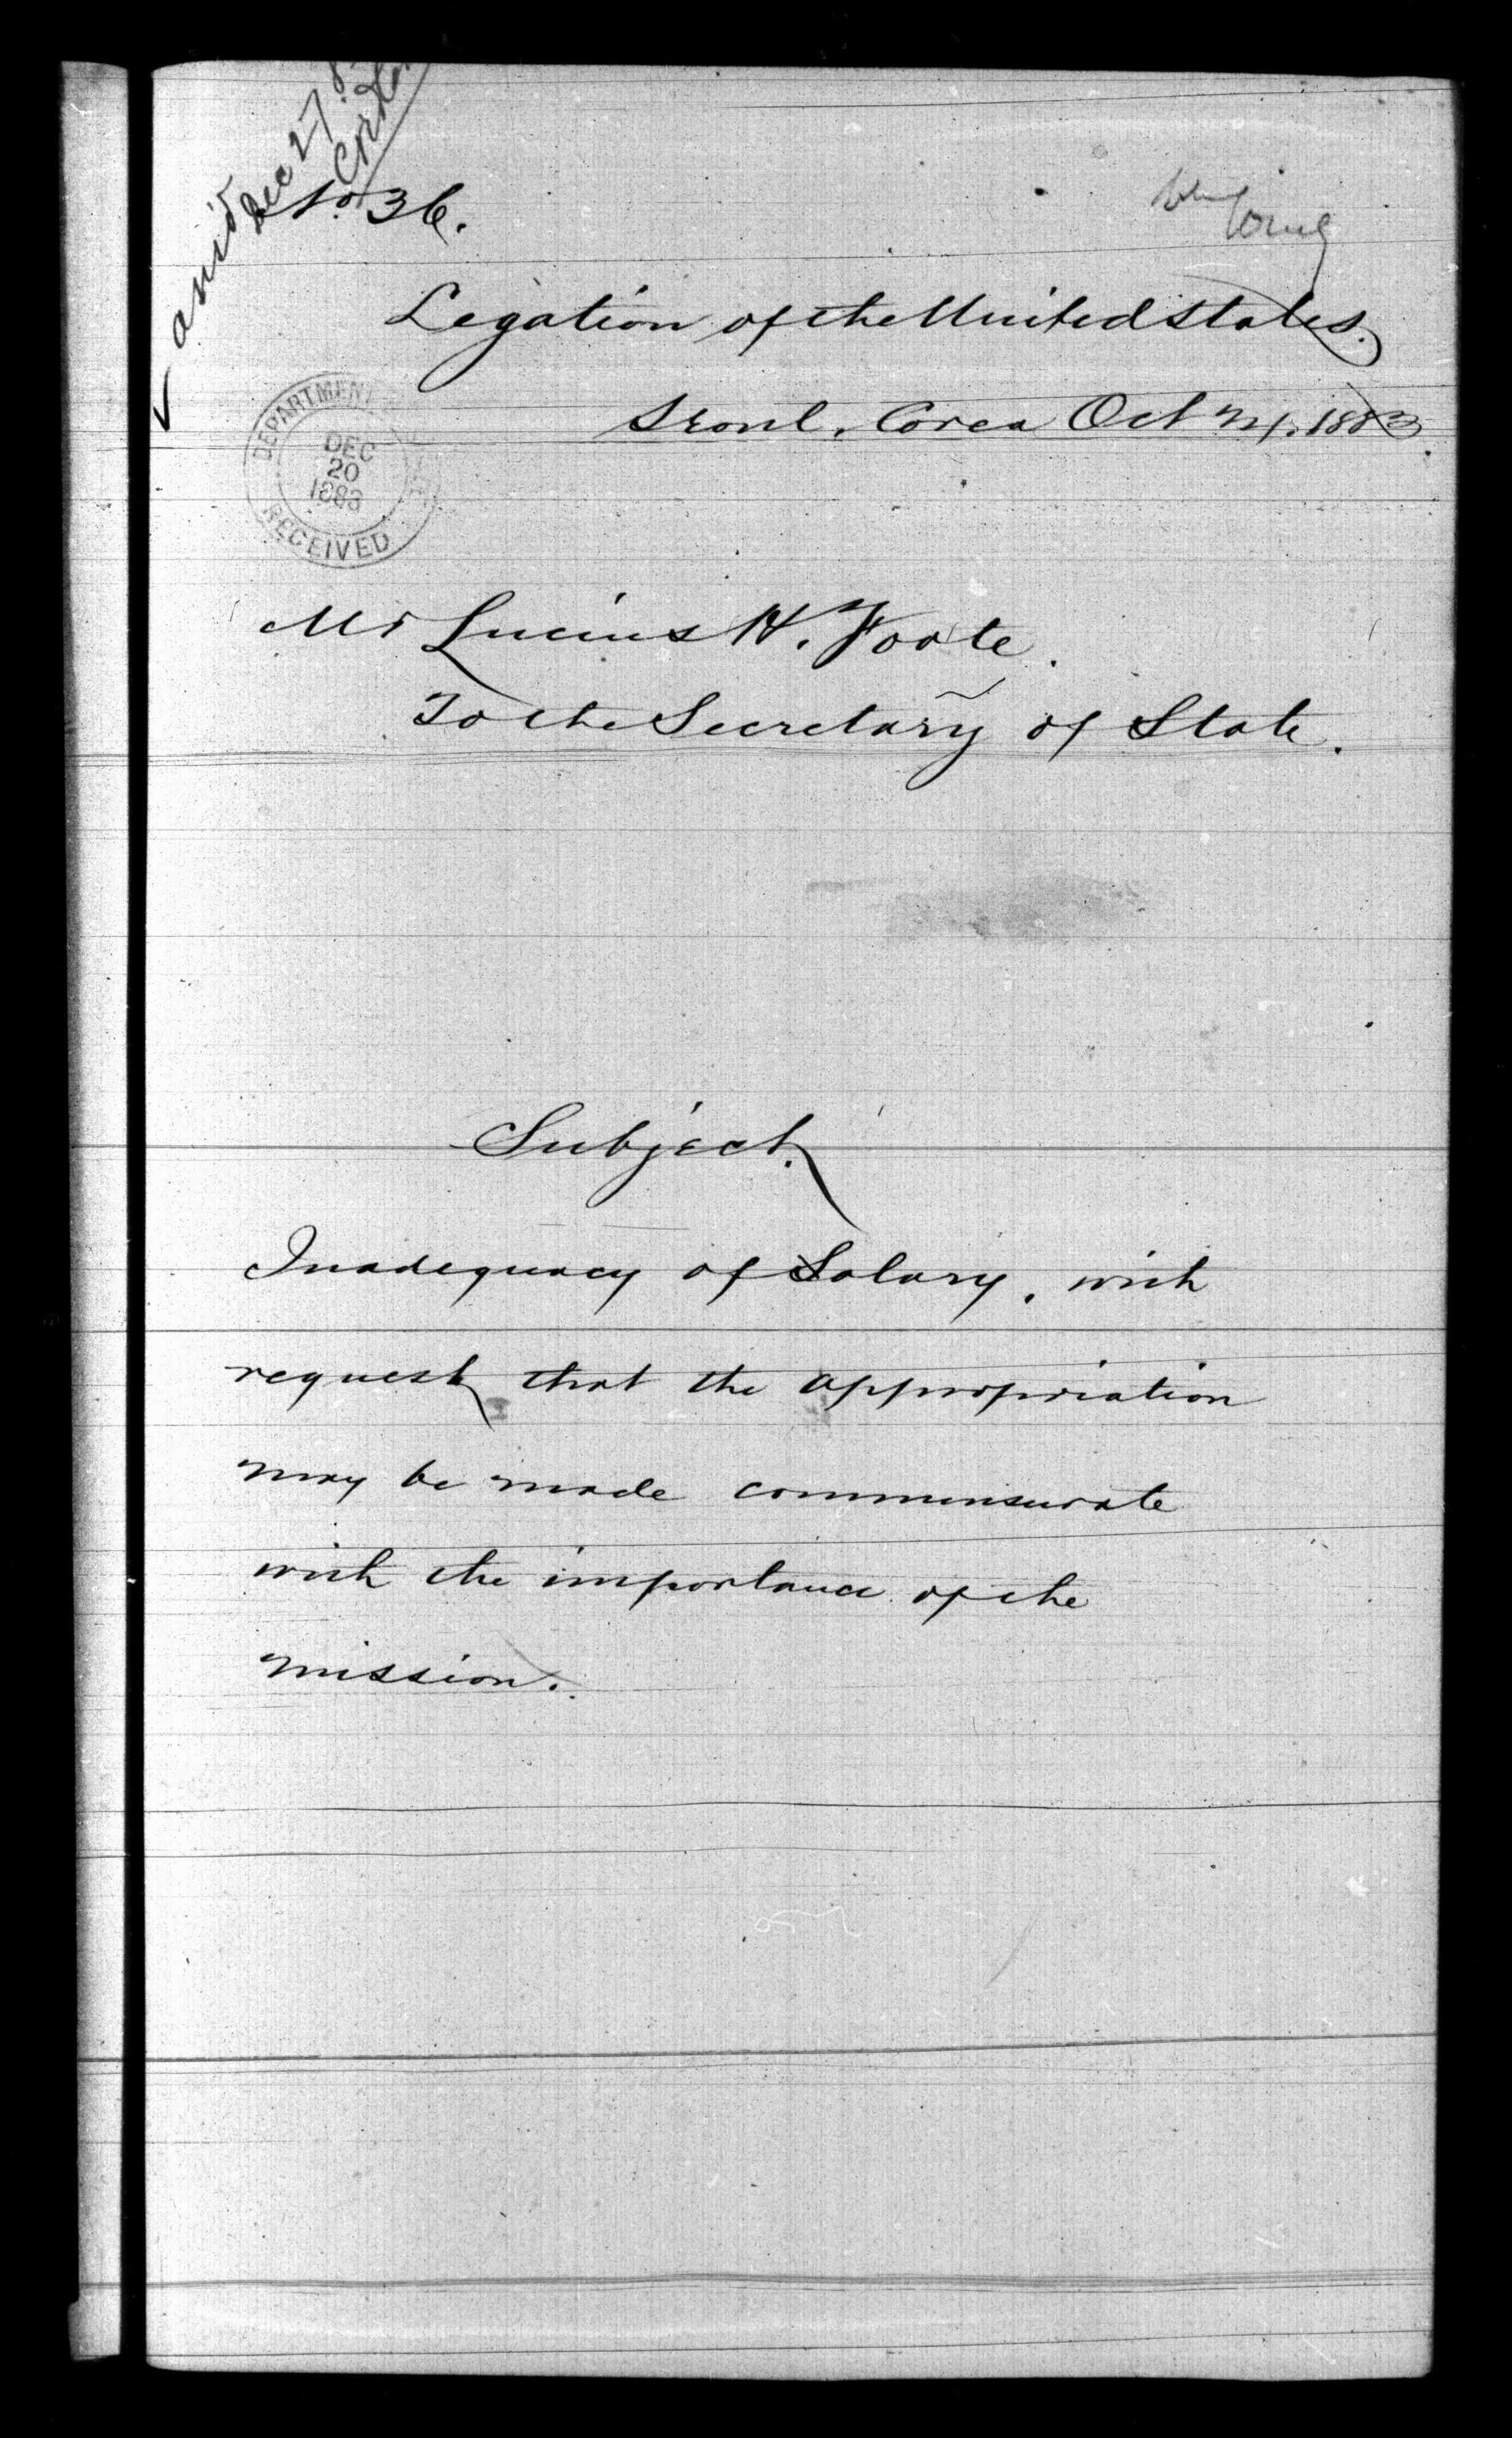 ans'd
Dec 27
No 36.
Legation of the United States.
Seoul, Corea Oct 24, 1883.
DEPARTMENT
DEC
20
1883
RECEIVED
Mr Lucius H. Foote.
To the Secretary of State.
Subject.
Inadequacy of Salary, with
request that the appropriation
may be made commensurate
with the importance of the
mission.